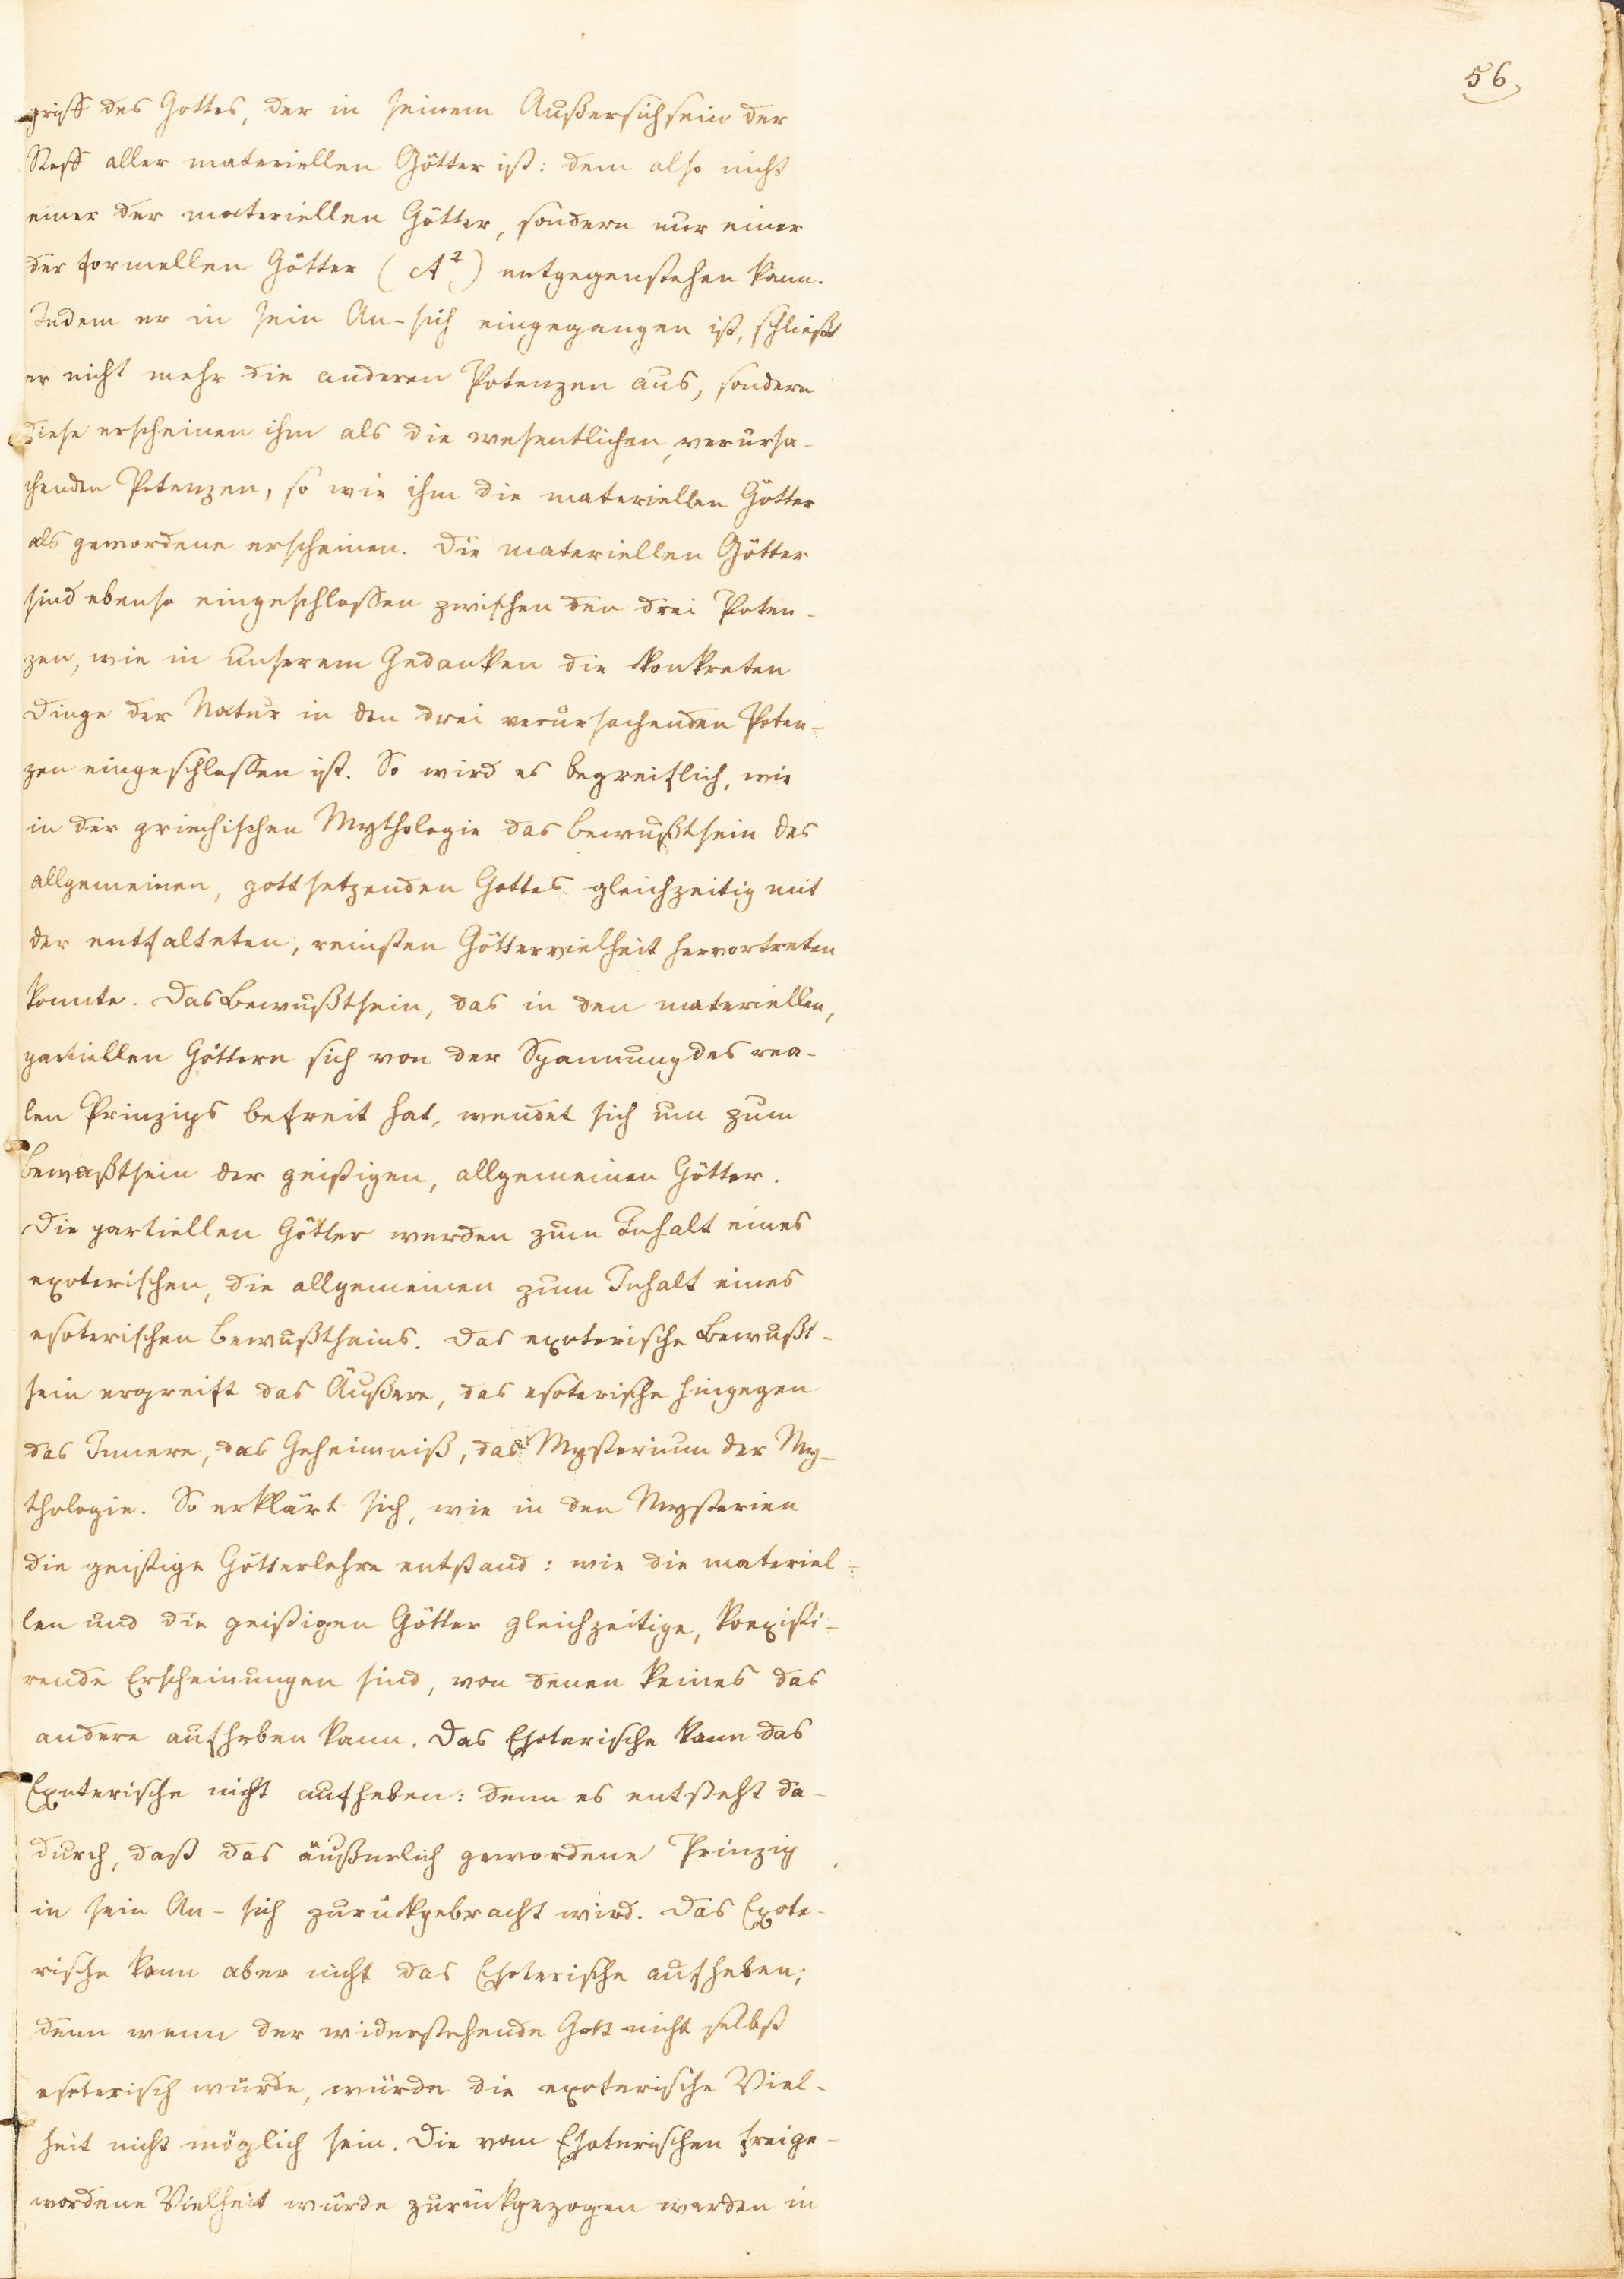 56.
griff des Gottes, der in seinem Außersichsein der
Stoff aller materiellen Götter ist: dem also nicht
einer der materiellen Götter, sondern nur einer
der formellen Götter (A²) entgegenstehen kann.
Indem er in sein An-sich eingegangen ist, schließt
er nicht mehr die anderen Potenzen aus, sondern
diese erscheinen ihm als die wesentlichen, verursa-
chenden Potenzen, so wie ihm die materiellen Götter
als gewordene erscheinen. Die materiellen Götter
sind ebenso eingeschlossen zwischen den drei Poten-
zen, wie in unserem Gedanken die konkreten
Dinge der Natur in den drei verursachenden Poten-
zen eingeschlossen ist. So wird es begreiflich, wie
in der griechischen Mythologie das Bewußtsein des
allgemeinen, gottsetzenden Gottes gleichzeitig mit
der entfalteten, reinsten Göttervielheit hervortreten
konnte. Das Bewußtsein, das in den materiellen,
partiellen Göttern sich von der Spannung des rea-
len Prinzips befreit hat, wendet sich um zum
Bewußtsein der geistigen, allgemeinen Götter.
Die partiellen Götter werden zum Inhalt eines
exoterischen, die allgemeinen zum Inhalt eines
esoterischen Bewußtseins. Das exoterische Bewußt-
sein ergreift das Äußere, das esoterische hingegen
das Innere, das Geheimniß, das Mysterium der My-
thologie. So erklärt sich, wie in den Mysterien
die geistige Götterlehre entstand: wie die materiel-
len und die geistigen Götter gleichzeitige, koexisti-
rende Erscheinungen sind, von denen keines das
andere aufheben kann. Das Esoterische kann das
Exoterische nicht aufheben: denn es entsteht da-
durch, daß das äußerlich gewordene Prinzip
in sein An-sich zurückgebracht wird. Das Exote-
rische kann aber nicht das Esoterische aufheben;
denn wenn der widerstehende Gott nicht selbst
esoterisch würde, würde die exoterische Viel-
heit nicht möglich sein. Die vom Esoterischen freige-
wordene Vielheit würde zurückgezogen werden in